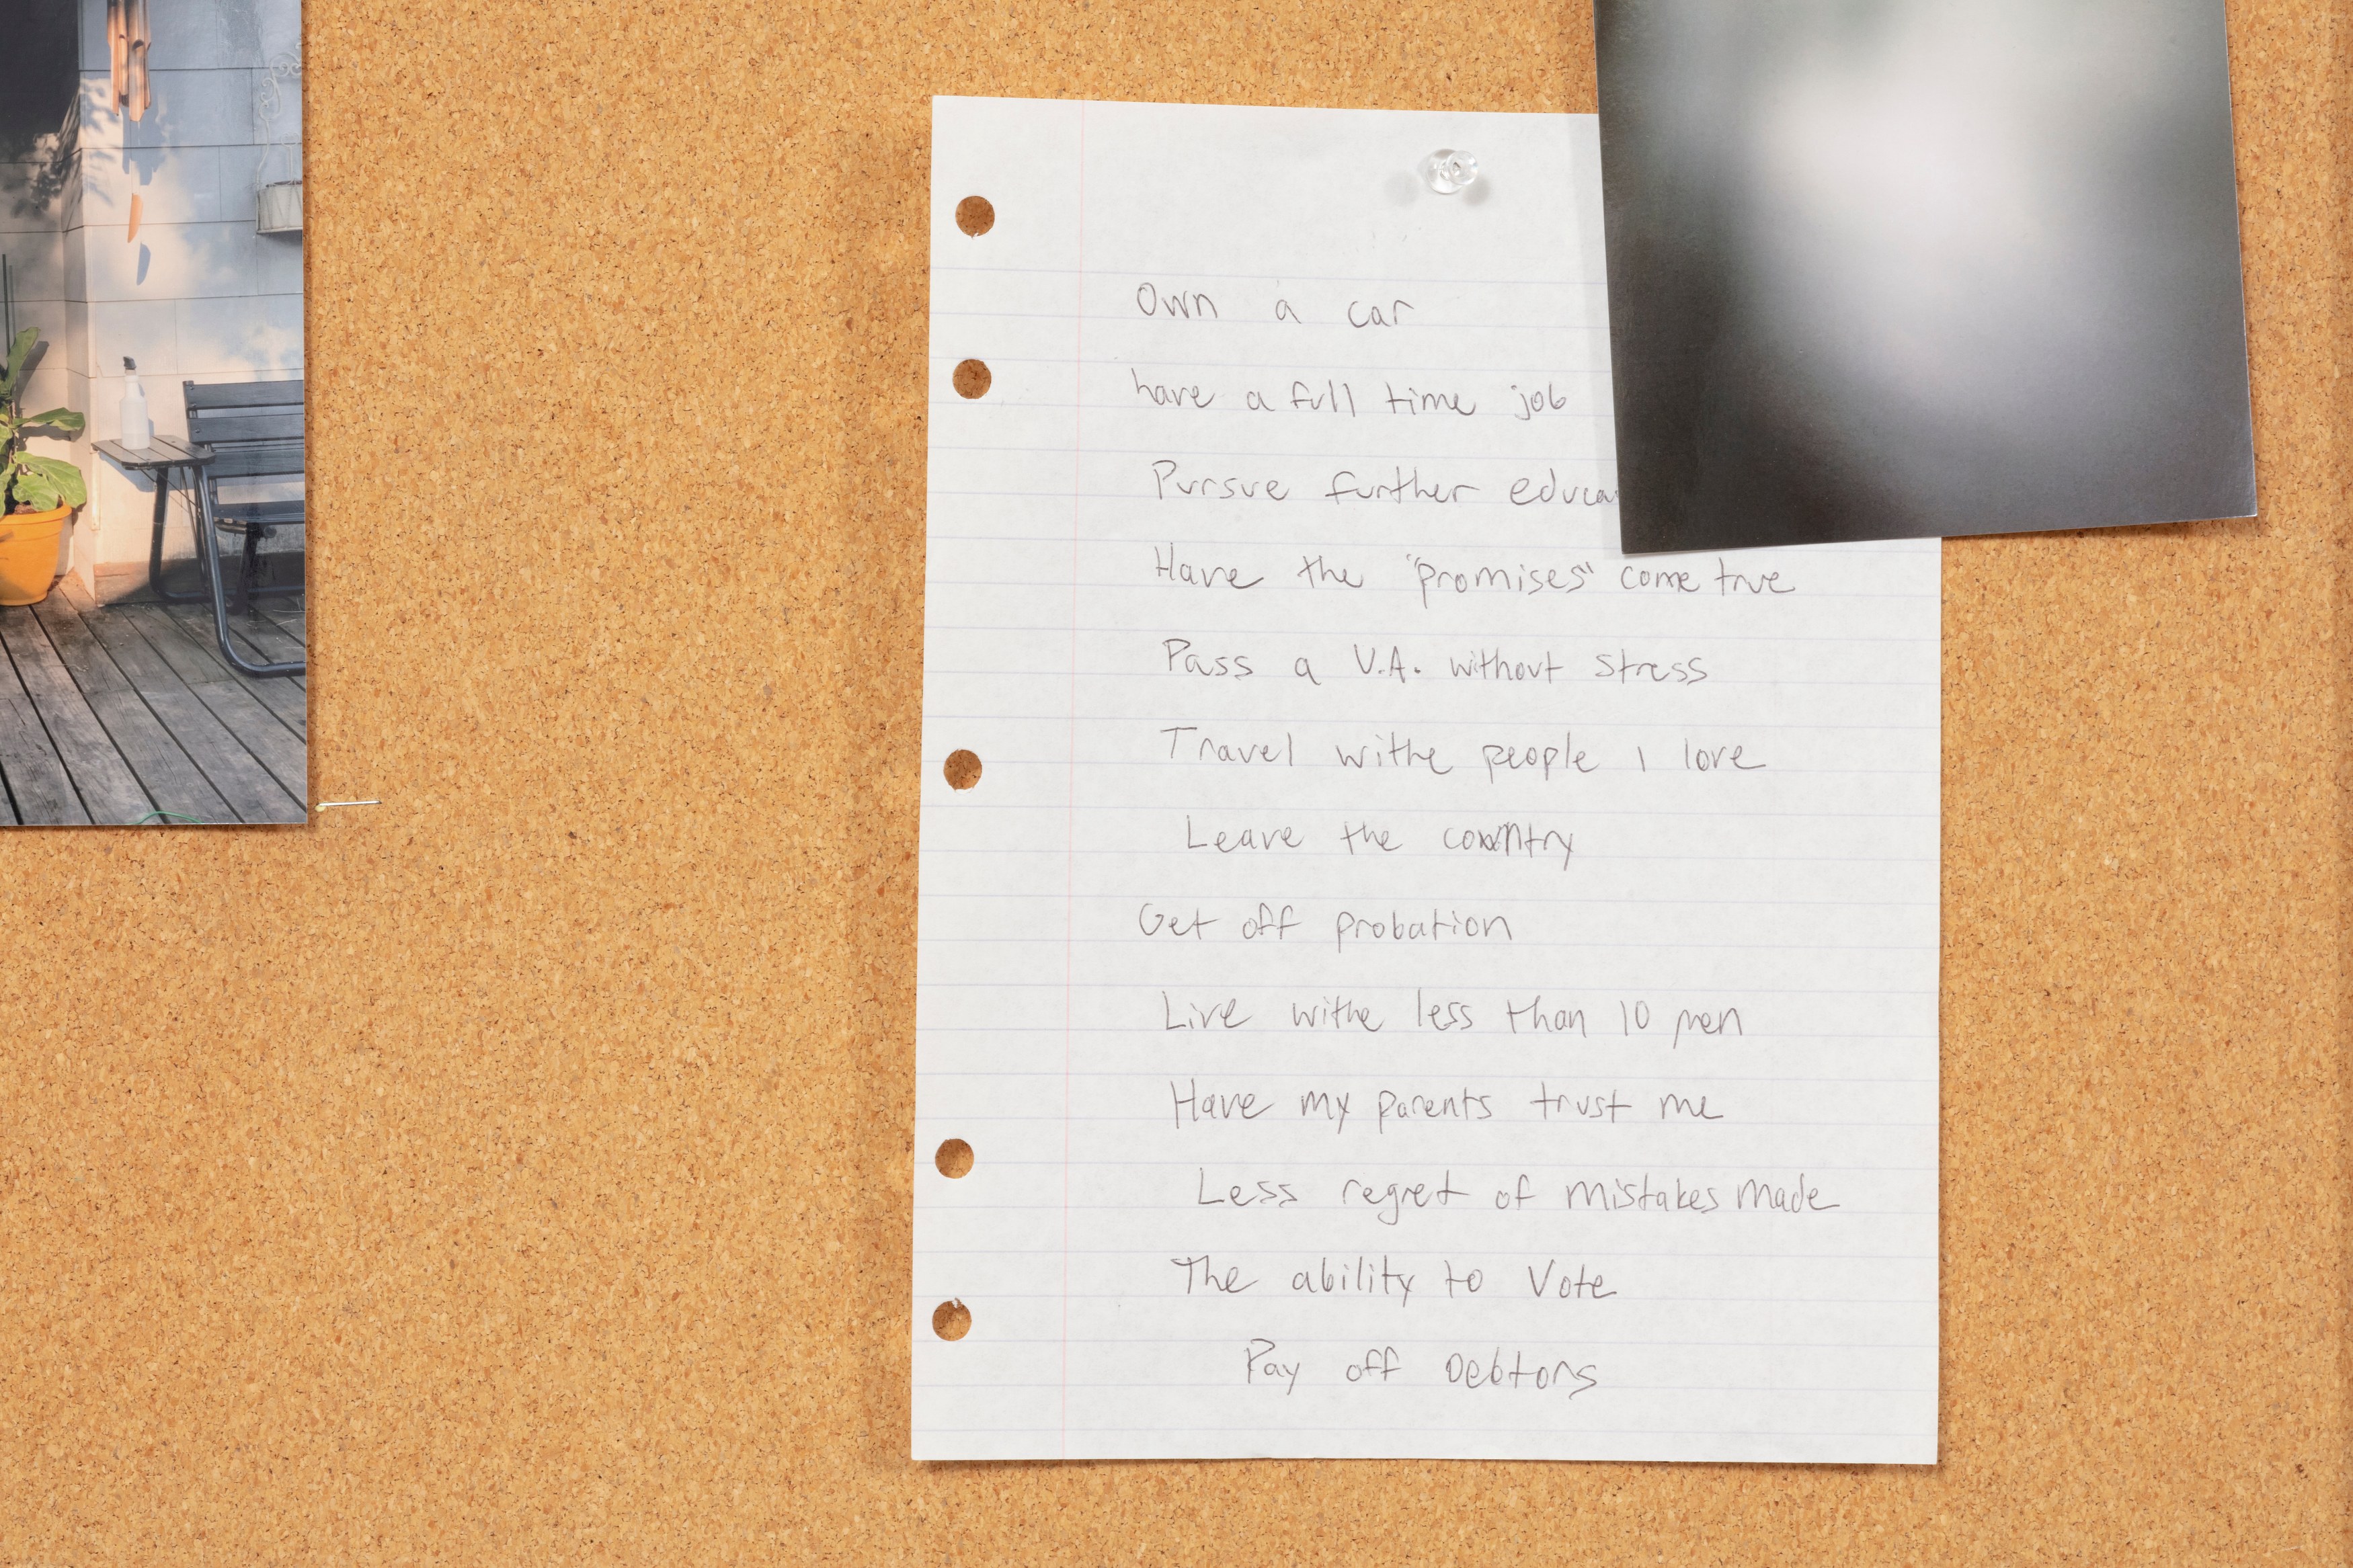 Own a car
have a full time job
Pursue further educa
Have the "promises" come true
Pass a U.A. without stress
Travel withe people I love
Leave the country
Get off probation
Live withe less than 10 men
Have my parents trust me
Less regret of mistakes made
The ability to Vote
Pay off Debtors